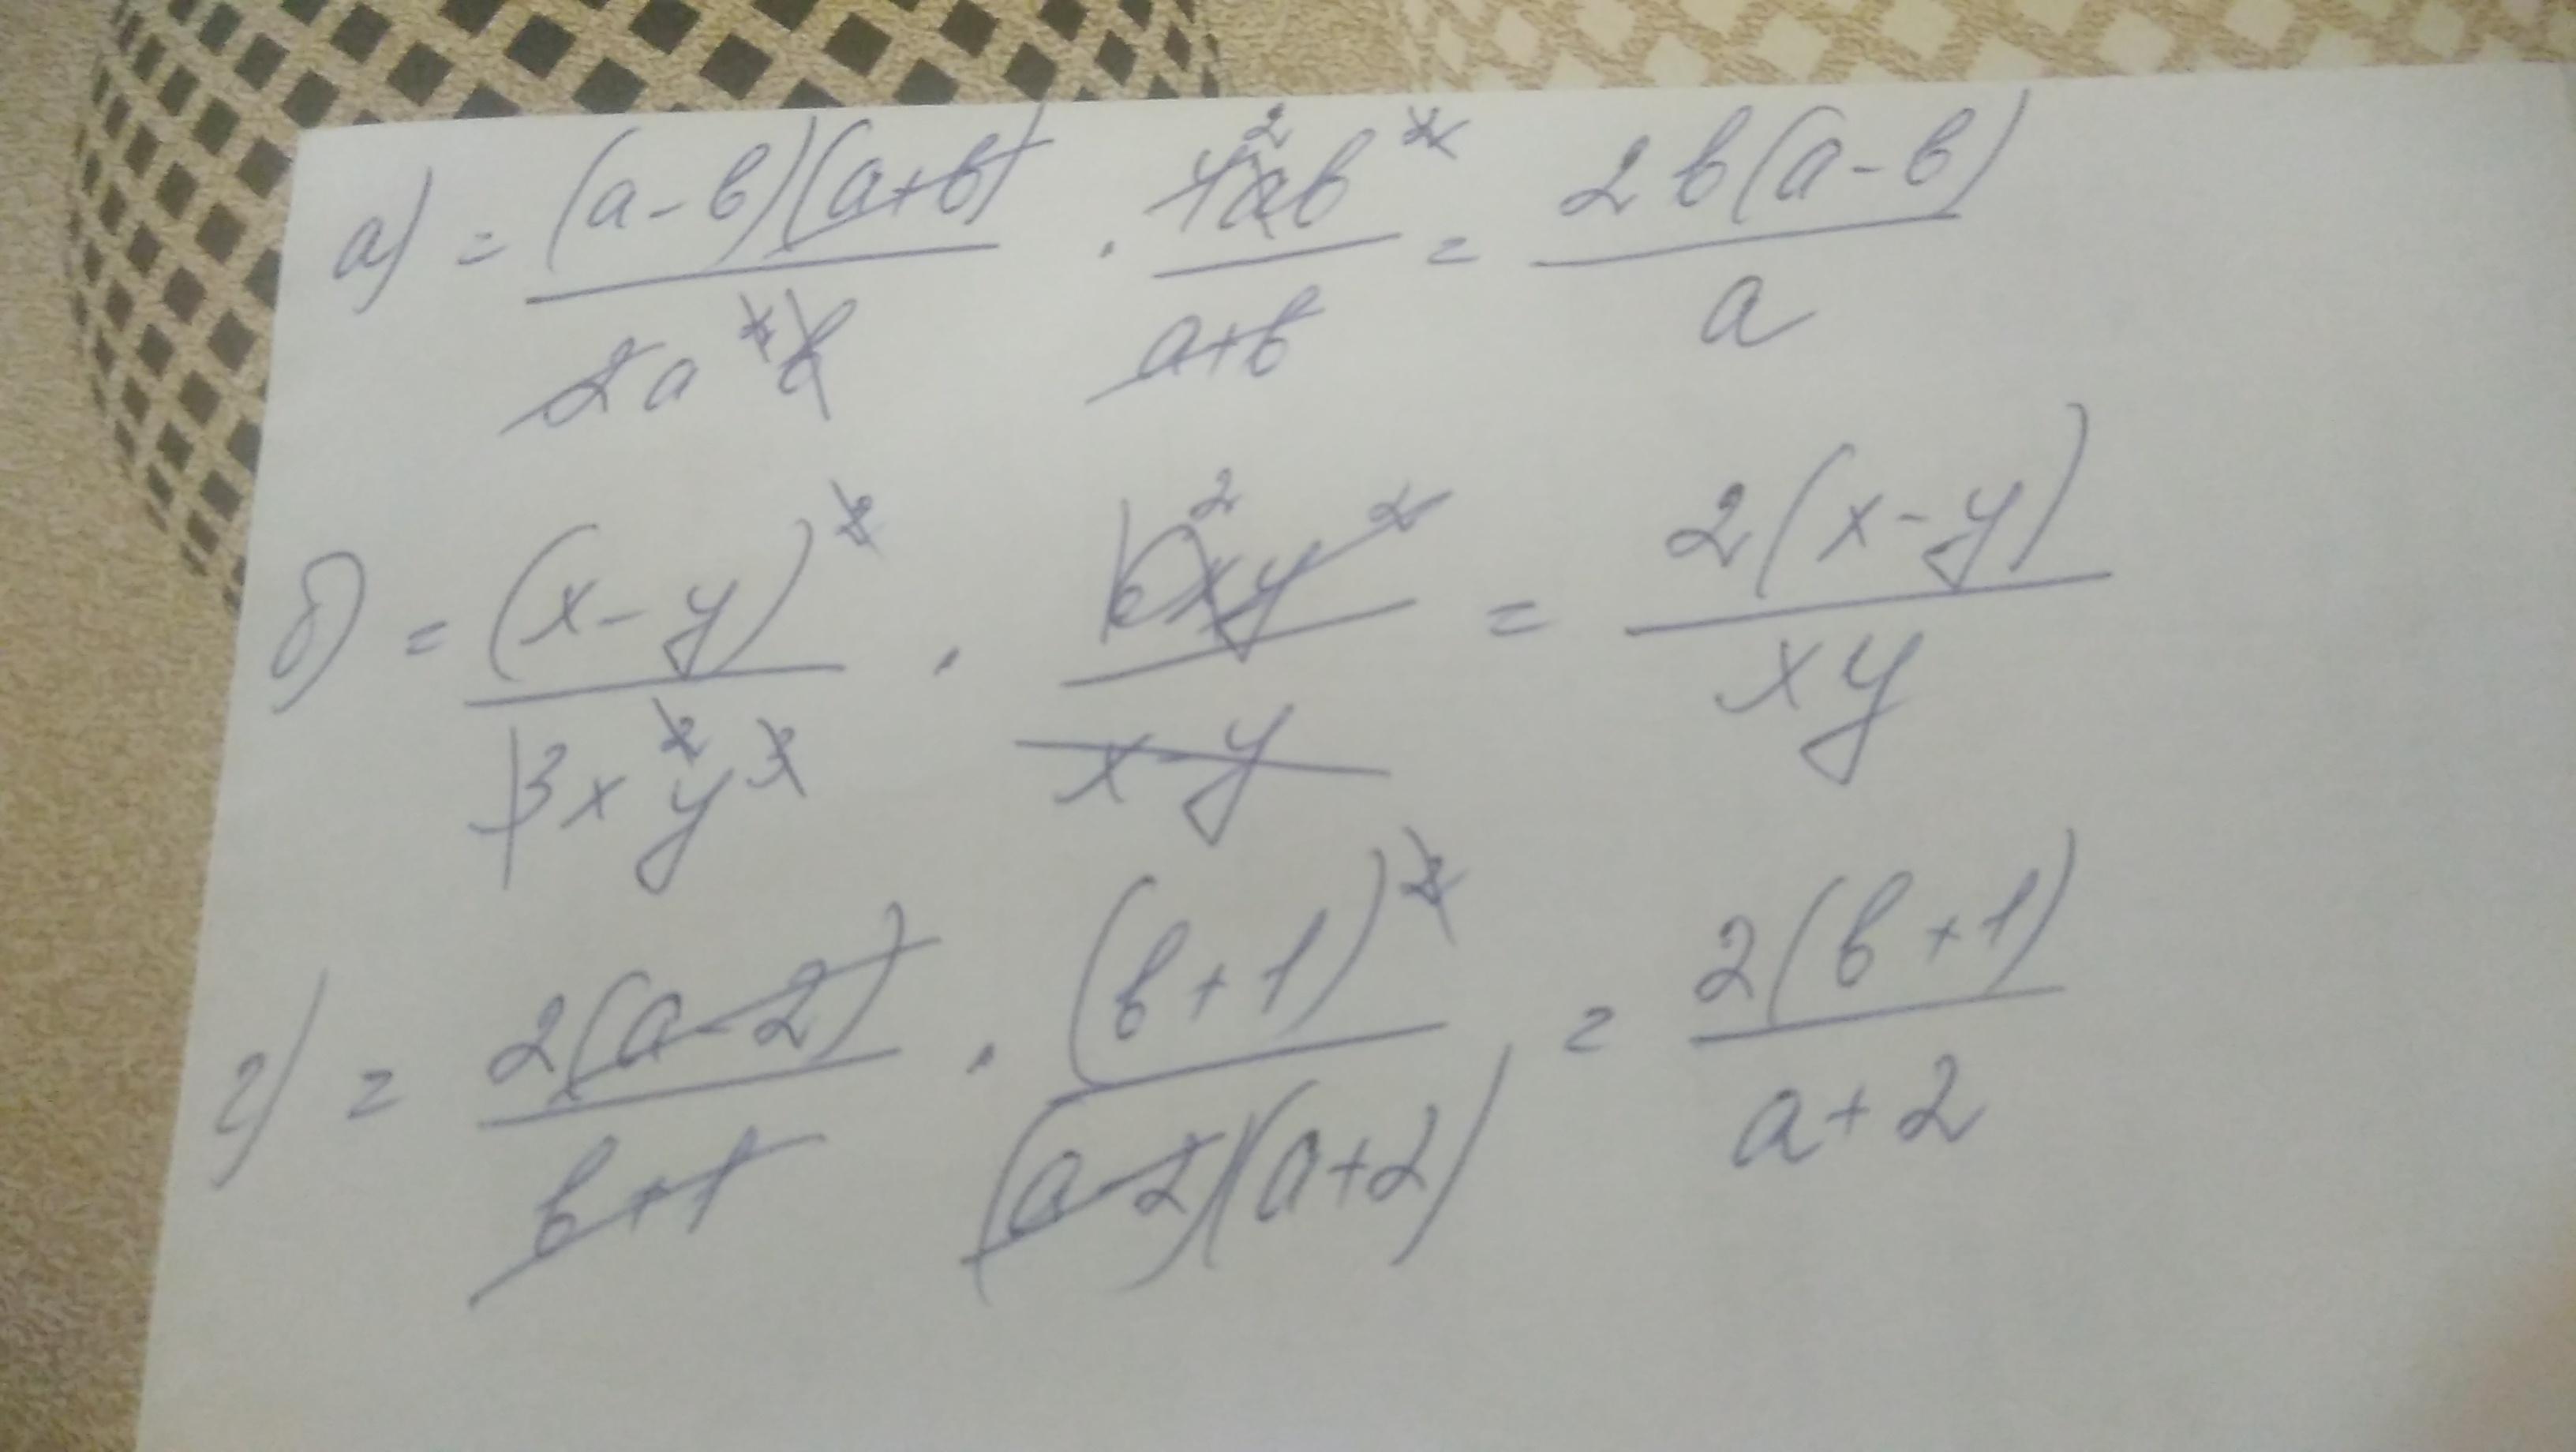 а) = (a-b)(a+b) / 2a²b · 4²ab² / a+b = 2b(a-b) / a
б) = (x-y)² / 3x²y³ · 6²xy² / x-y = 2(x-y) / xy
г) = 2(a-2) / b+1 · (b+1)² / (a-2)(a+2) = 2(b+1) / a+2